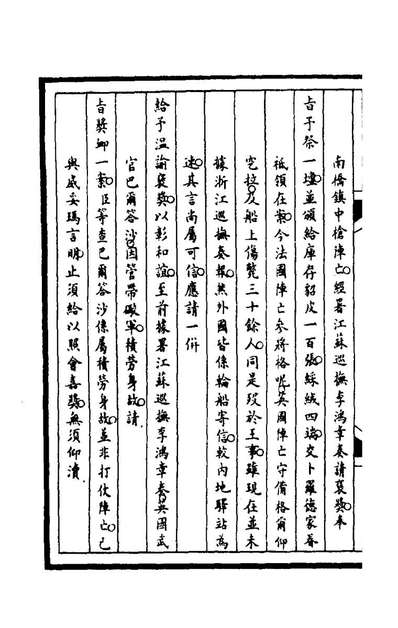 南橋鎮中槍陣亡經署江蘇巡撫李鴻章奏請褒獎奉
旨予祭一壇並頒給庫存貂皮一百張綵絨四端交卜羅德家眷
祇領在案今法國陣亡參將格呢英國陣亡守備格爾仰
乞拉及船上傷斃三十餘人同是歿於王事雖現在並未
據浙江巡撫奏報無外國皆係輪船寄信較內地驛站為
速其言尚屬可信應請一併
給予溫諭褒獎以彰和誼至前據署江蘇巡撫李鴻章奏英國武
官巴爾答沙因管帶礮軍積勞身故請
旨獎卹一案臣等查巴爾答沙係屬積勞身故並非打仗陣亡已
與威妥瑪言明止須給以照會嘉獎無須仰瀆